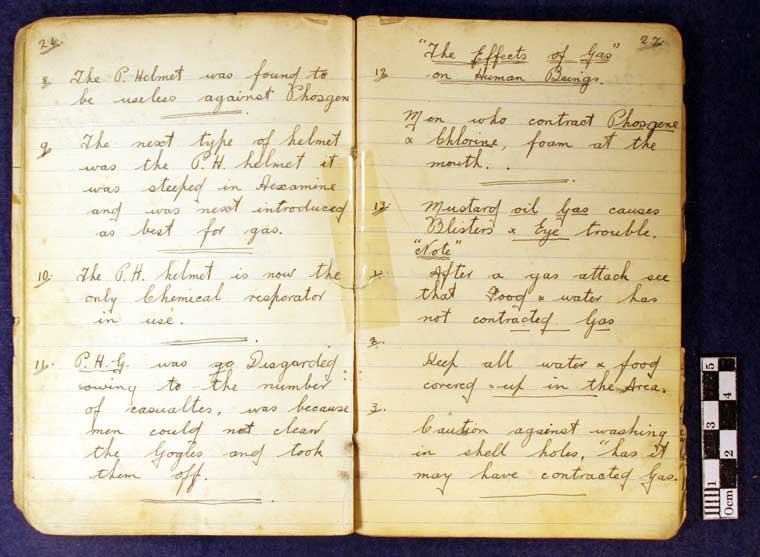 26.
8. The P. Helmet was found to
be useless against Phosgen
9. The next type of helmet
was the P.H. helmet it
was steeped in Hexamine
and was next introduced
as best for gas.
10. The P.H. helmet is now the
only Chemical resporator
in use.
11. P.H.G. was go Disgarded
owing to the number
of casualtes, was because
men could not clean
the Gogles and took
them off.
27.
"The Effects of Gas"
12. on Human Beings.
Men who contract Phosgene
& Chlorine, foam at the
mouth..
13. Mustard oil Gas causes
Blisters & Eye trouble.
"Note"
1. After a gas attack see
that Food & water has
not contracted Gas
2.
Keep all water & food
covered up in the Area.
3.
Caution against washing
in shell holes, "has it
may have contracted Gas.
0cm 1 2 3 4 5